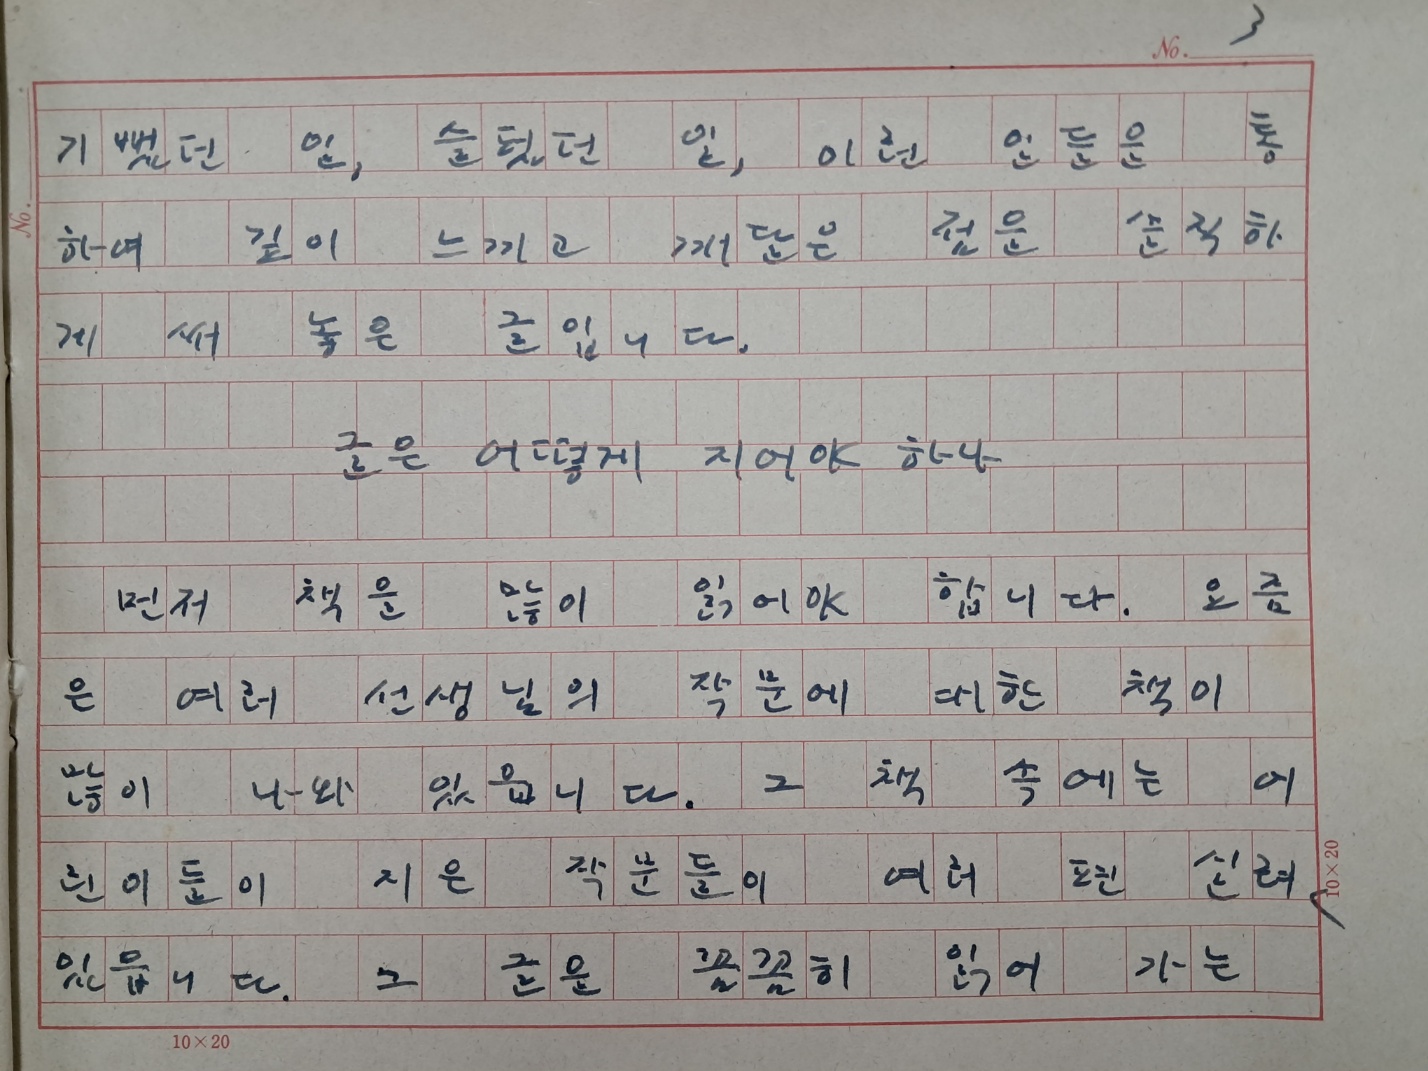 No. 3
기뻤던 일, 슬펐던 일, 이런 일들을 통
하여 깊이 느끼고 깨달은 점을 솔직하
게 써 놓은 글입니다.
글은 어떻게 지어야 하나
먼저 책을 많이 읽어야 합니다. 요즘
은 여러 선생님의 작문에 대한 책이
많이 나와 있읍니다. 그 책 속에는 어
린이들이 지은 작문들이 여러 편 실려
있읍니다. 그 글을 꼼꼼히 읽어 가는
No.
10×20
10×20